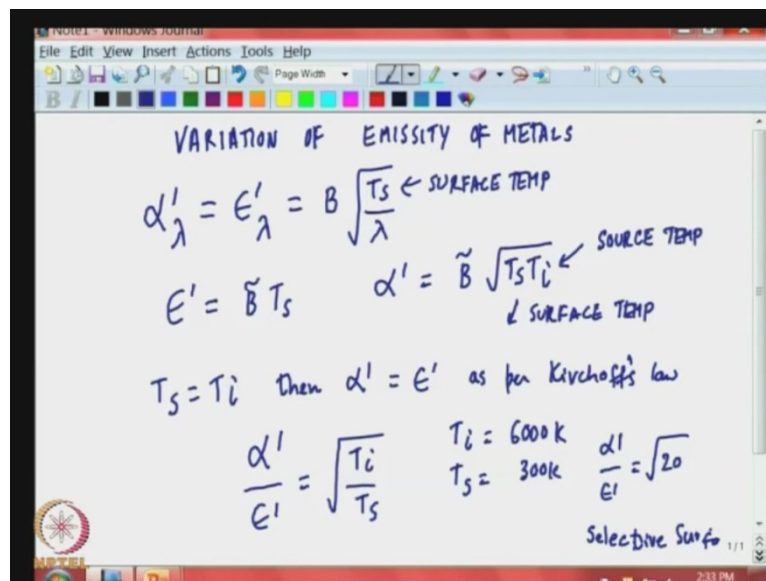 Note1 - Windows Journal
File Edit View Insert Actions Tools Help
Page Width
B I
VARIATION OF EMISSITY OF METALS
α'λ = ϵ'λ = B √(Ts/λ) ← SURFACE TEMP
SOURCE TEMP
ϵ' = B̃ Ts α' = B̃ √(TsTi)
SURFACE TEMP
Ts = Ti then α' = ϵ' as per Kirchoff's law
α'/ϵ' = √(Ti/Ts)
Ti = 6000K
Ts = 300K
α'/ϵ' = √20
Selective Surfo
1/1
NPTEL
2:33 PM